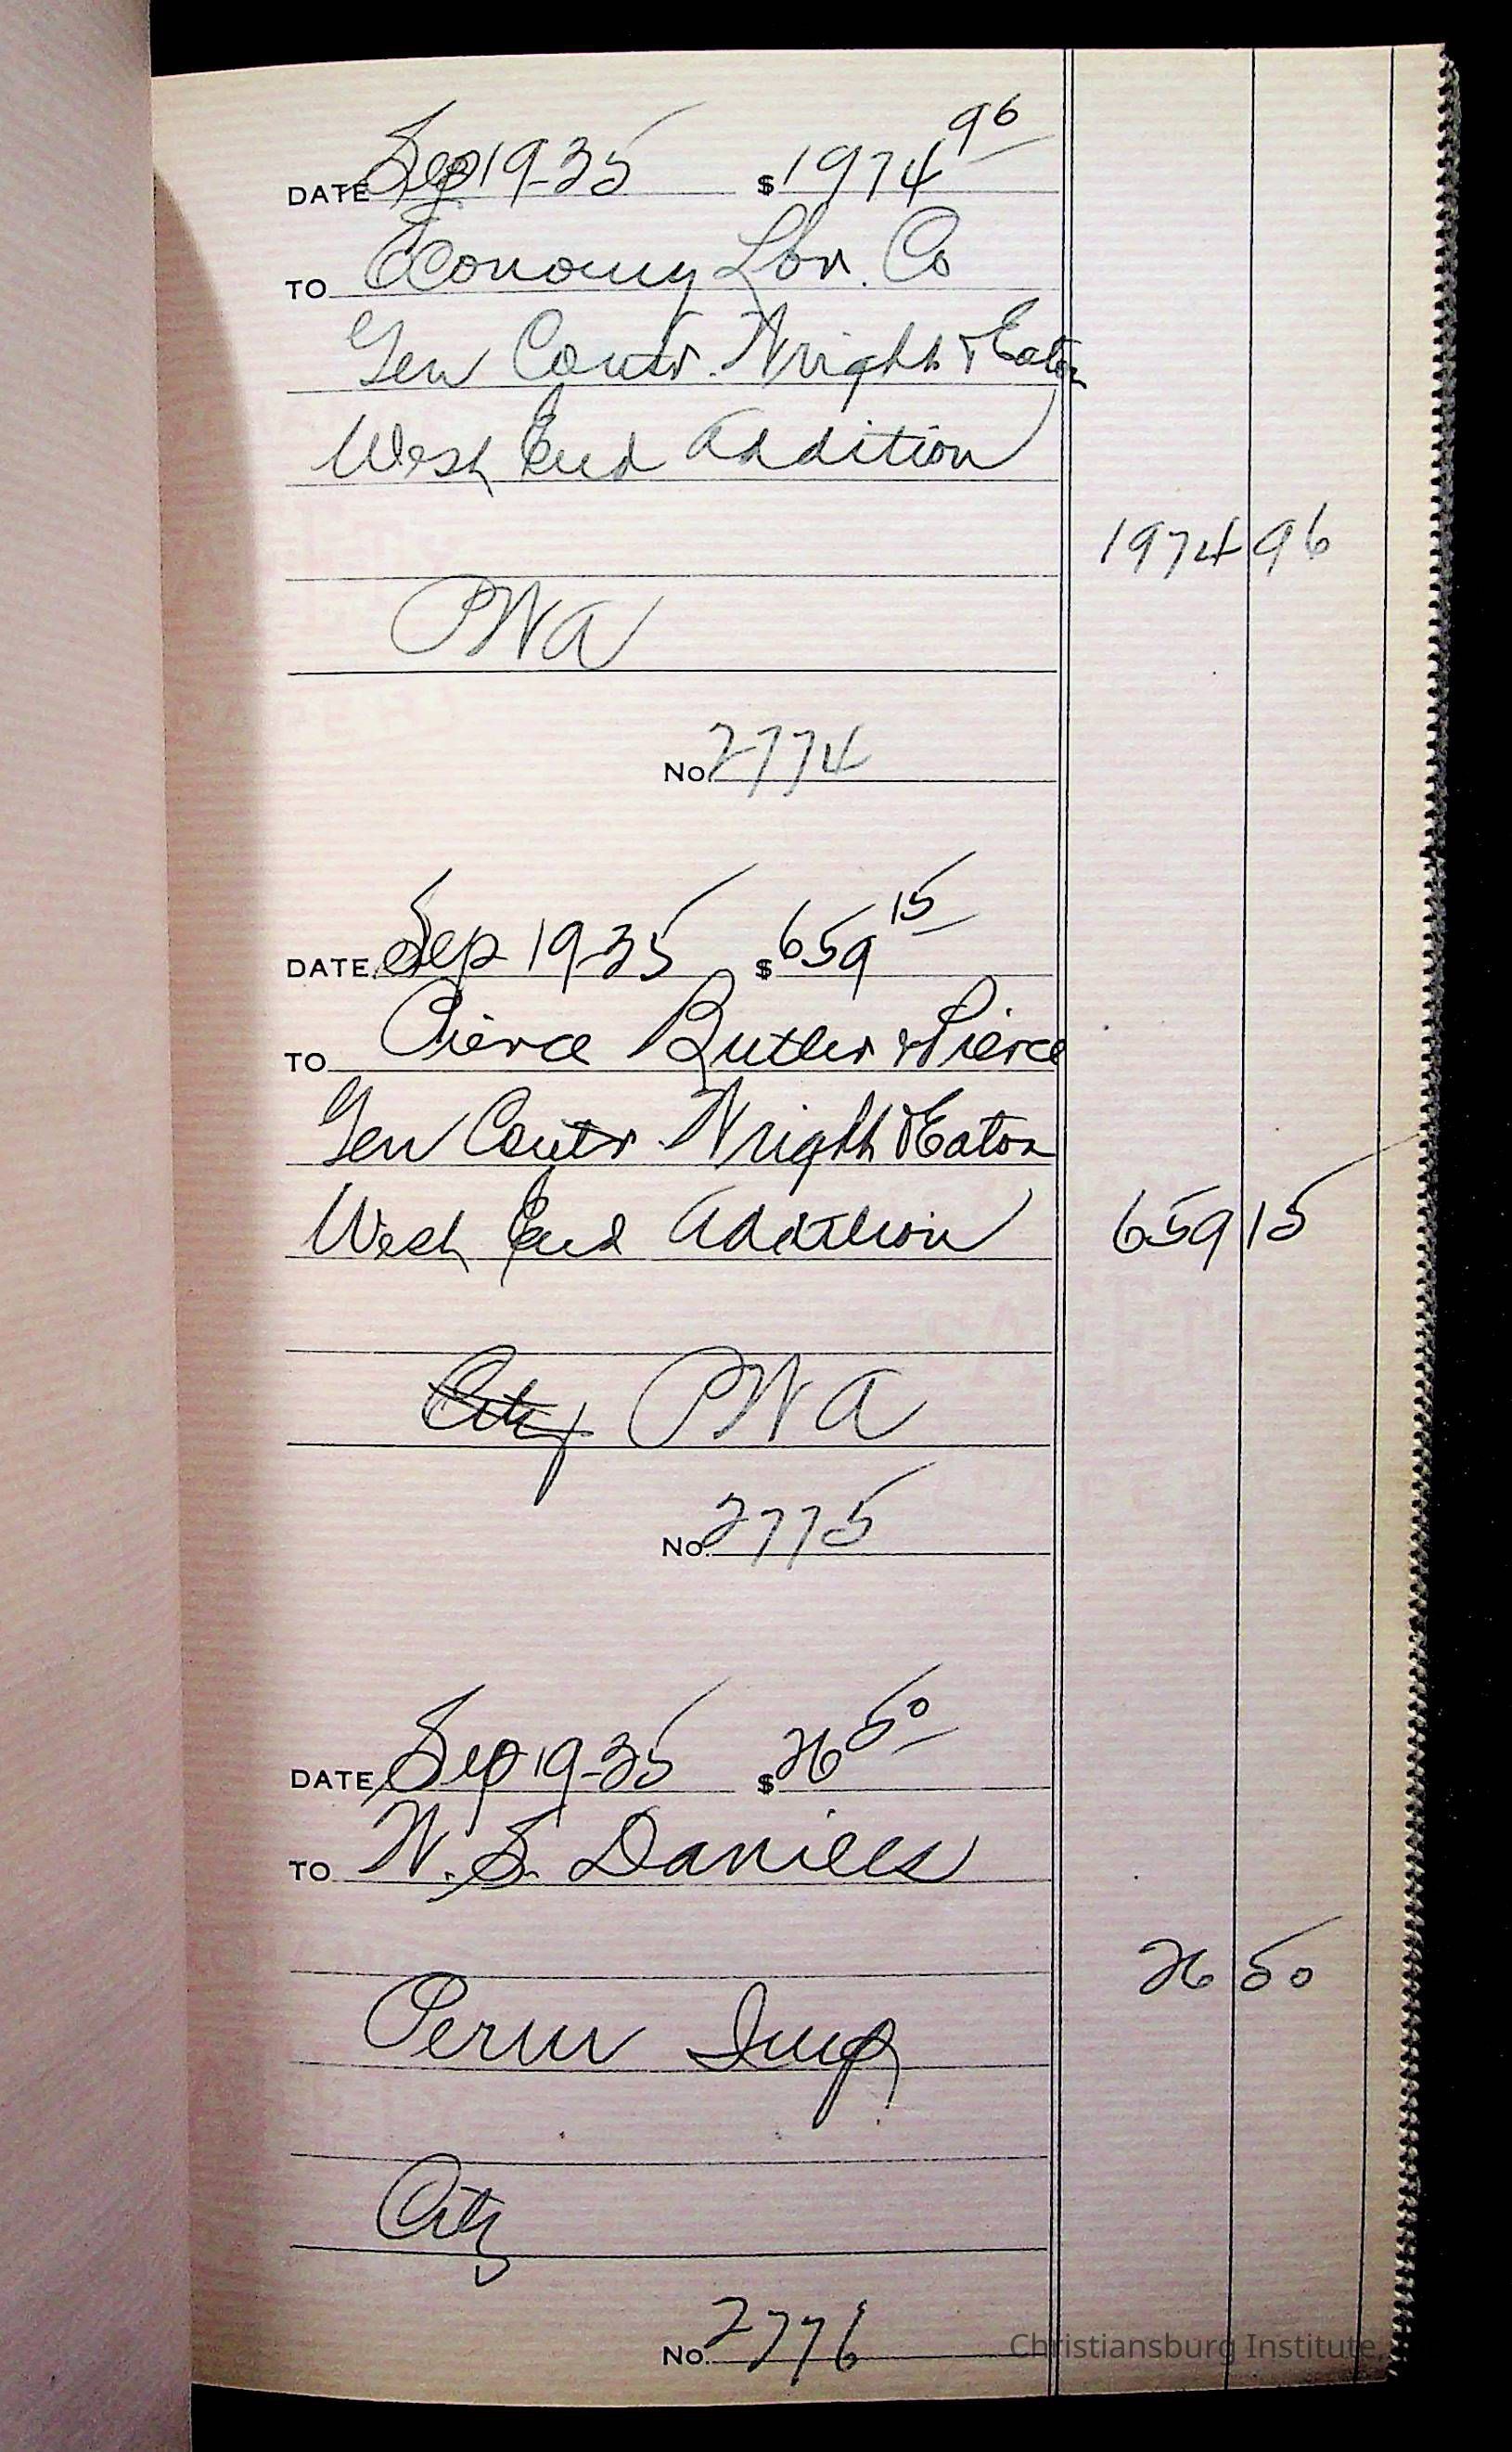 DATE Sep 19-35 $ 1974 96
TO Economy Lbr. Co
Gen Contr. Wright & Eaton
West End Addition
1974 96
PWA
No. 2774
DATE Sep 19-35 $ 659 15
TO Pierce Butler & Pierce
Gen Contr. Wright & Eaton
West End Addition 659 15
City PWA
No. 2775
DATE Sep 19-35 $ 26 50
TO W. S. Daniels
26 50
Perm Imp
City
No. 2776
Christiansburg Institute,